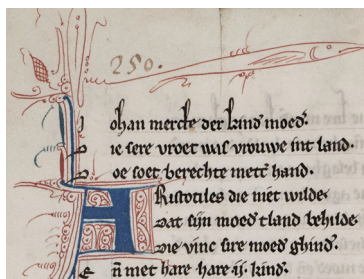 250.
Johan mercte der kind moed.
ie sere vroet was vrouwe int land.
oe soet berechte mett hand.
Aristotiles die niet wilde
Dat sijn moed tland behilde
Die vinc sire moed ghind
n̄ met hare hare ij. kind.